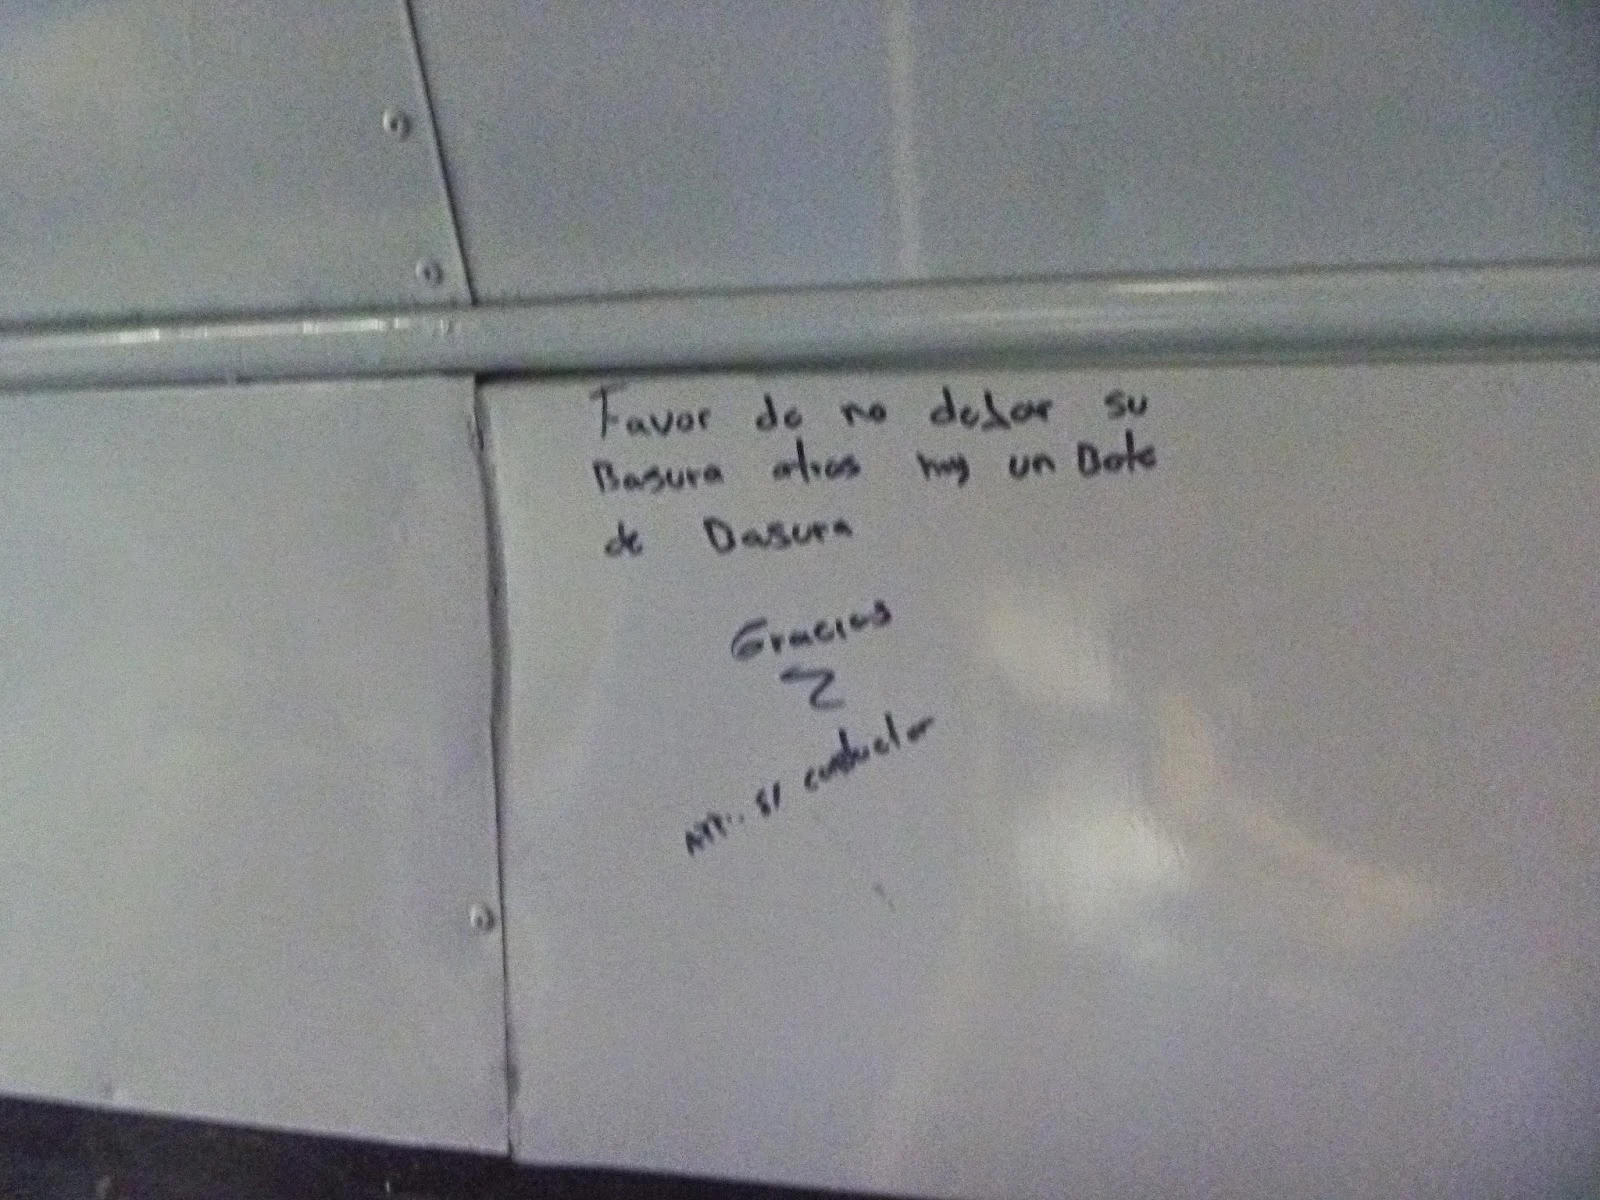 Favor de no dejar su
Basura atras hay un Bote
de Basura
Gracias
ATT: Sr conductor